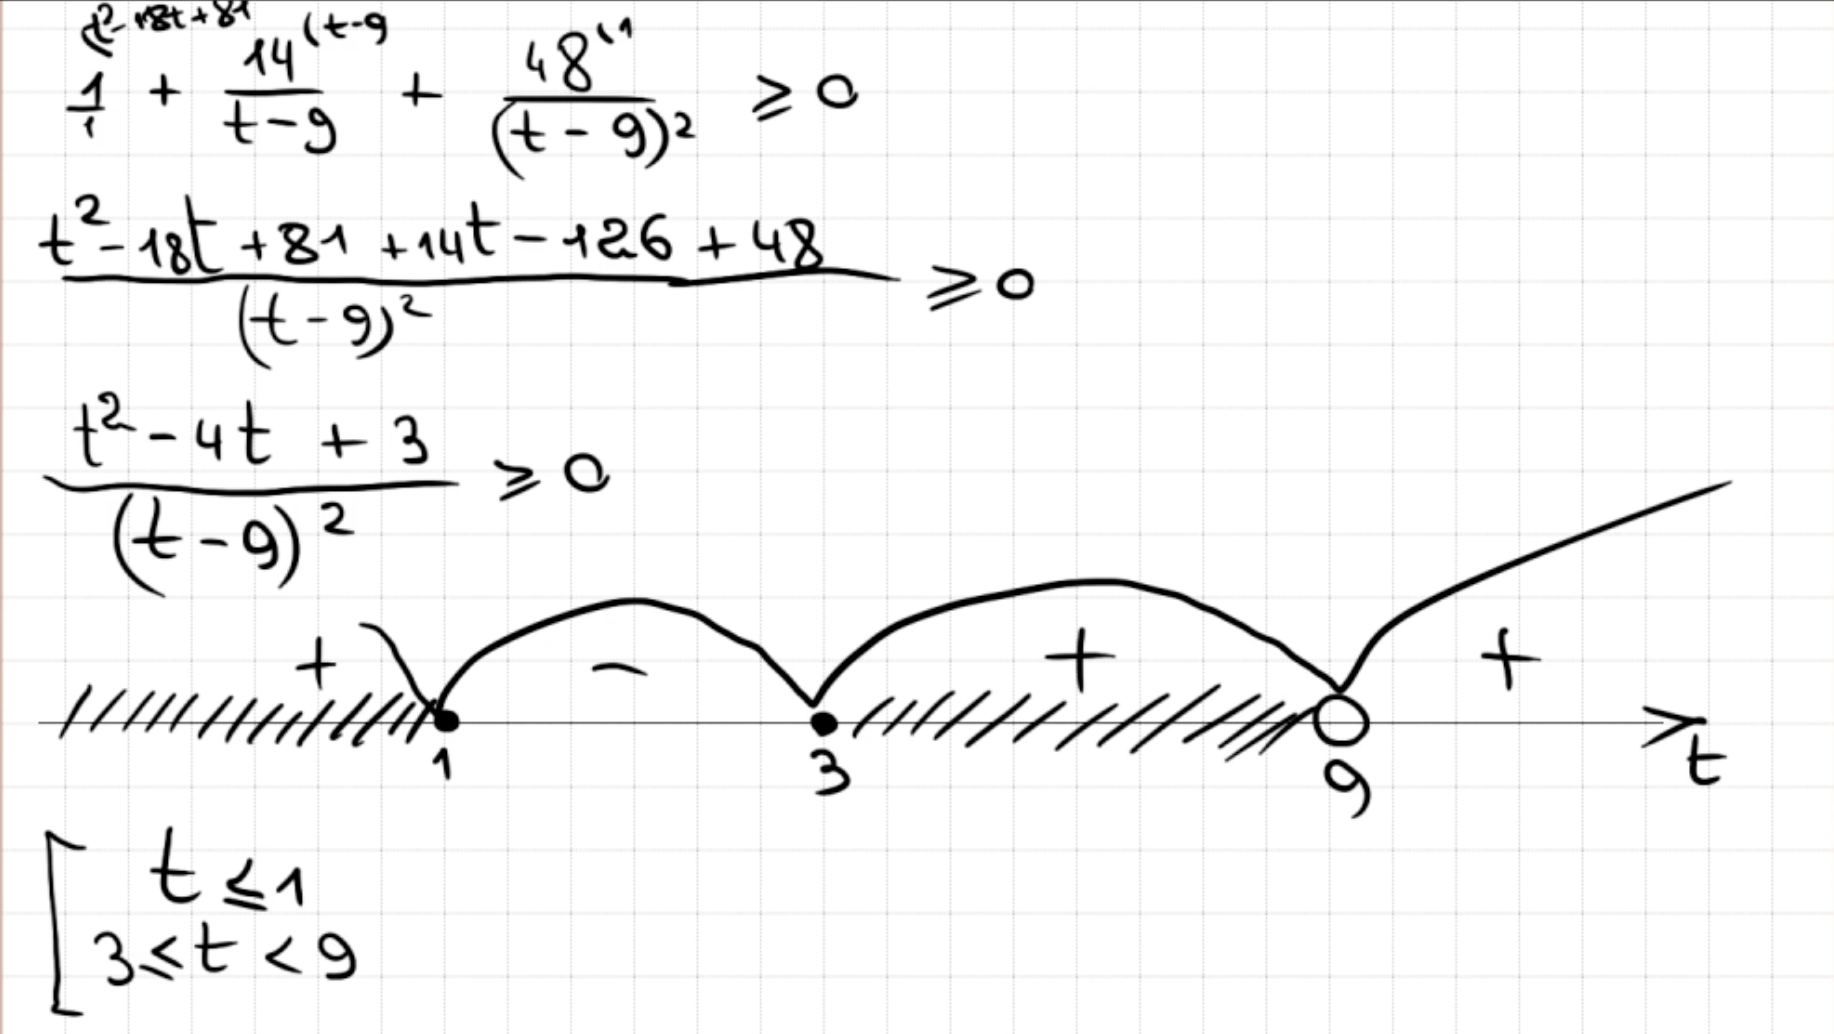 t²-18t+81 (t-9 (1
1/1 + 14/(t-9) + 48/(t-9)² ≥ 0
(t²-18t+81+14t-126+48)/(t-9)² ≥ 0
(t²-4t+3)/(t-9)² ≥ 0
+ - + +
1 3 9 t
[ t ≤ 1
3 ≤ t < 9